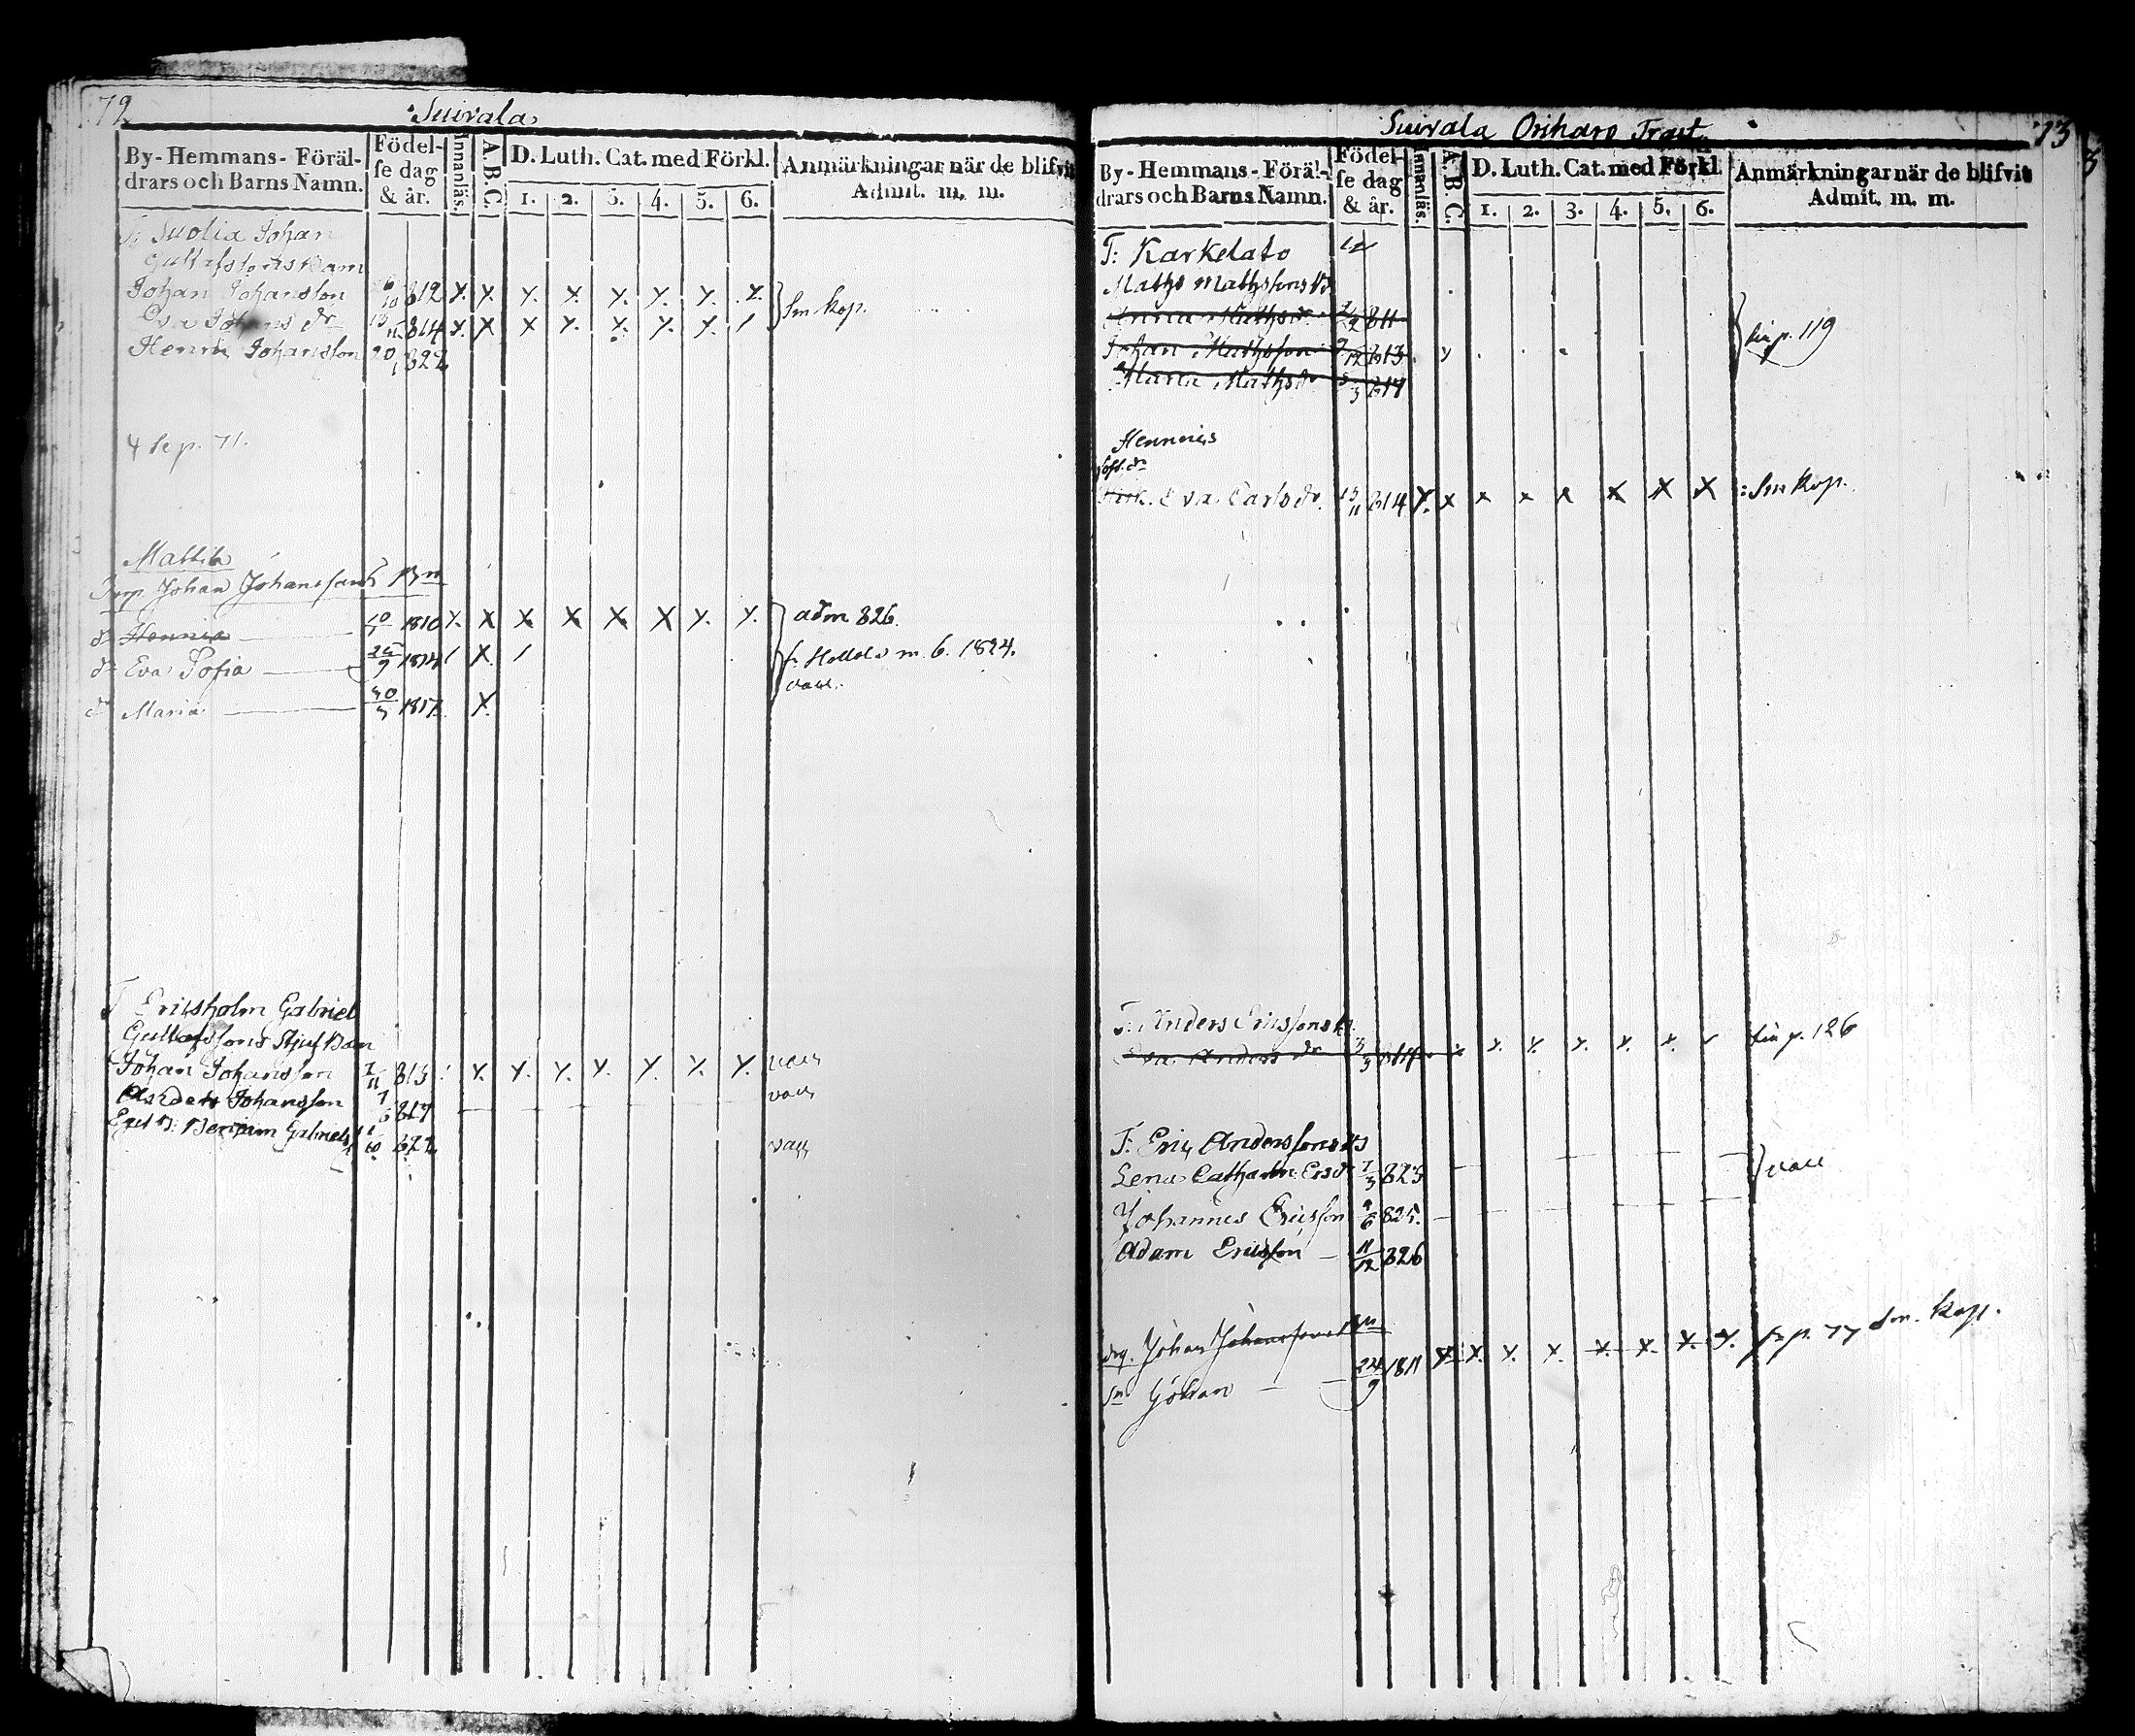 72
Suivala
By-Hemmans-Föräl-
drars och Barns Namn.
Födel-
se dag
& år.
Innanläs.
A. B. C.
D. Luth. Cat. med Förkl.
1. 2. 3. 4. 5. 6.
Anmärkningar när de blifvit
Admit. m. m.
Johan
Gustafssons Barn
Johan Johansson 6/10 812 x. x. x. x. x. x. x. x. Sm kop.
Eva Johans dr 814 x. x x x. x. x. x. /
Henric Johansson 20/1 822
71.
Mattila
Torp. Johan Johanssons Bn
dr Hennica 10/ 1810 x. x x x x x x. x. adm 826.
dr Eva Sofia 25/9 1814 / x. / m. 6. 1824.
vacc.
dr Maria 30/3 1817. x.
T Ericsholm Gabriel
Gustafssons Stjuf Barn
Johan Johansson 7/11 813 x. x. x. x. x. x. x. vacc
Anders Johansson 817 vacc
Benjamin Gabriels 822 vacc
73
Suivala Oriharo Tract
By-Hemmans-Föräl-
drars och Barns Namn.
Födel-
se dag
& år.
Innanläs.
A. B. C.
D. Luth. Cat. med Förkl.
1. 2. 3. 4. 5. 6.
Anmärkningar när de blifvit
Admit. m. m.
T: Karkelato
Maths Mathssons B
Anna Maths dr 2/9 811
Johan Mathsson 9/12 813 p. 119
Maria Maths dr 5/3 817
Henneris
Eva Carls dr. 13/11 814 x. x x x x x x x Sm Kop.
T: Anders Ericssons B.
Eva Anders dr 3/3 817 x. x. x. x. x. x. p. 126
T: Eric Anderssons B
Lena Catharin. Ersdr 7/3 823 vacc
Johannes Ericsson 9/6 825.
Adam Ericsson 11/12 826
Johan Johanssons Bn
Sn Johan 24/9 1811 x. x. x. x. x. x. x. x. fr p. 77 Sm. Kop.